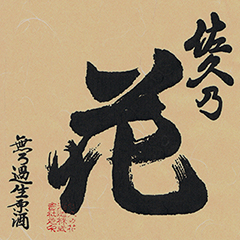 佐久乃
花
無ろ過生原酒